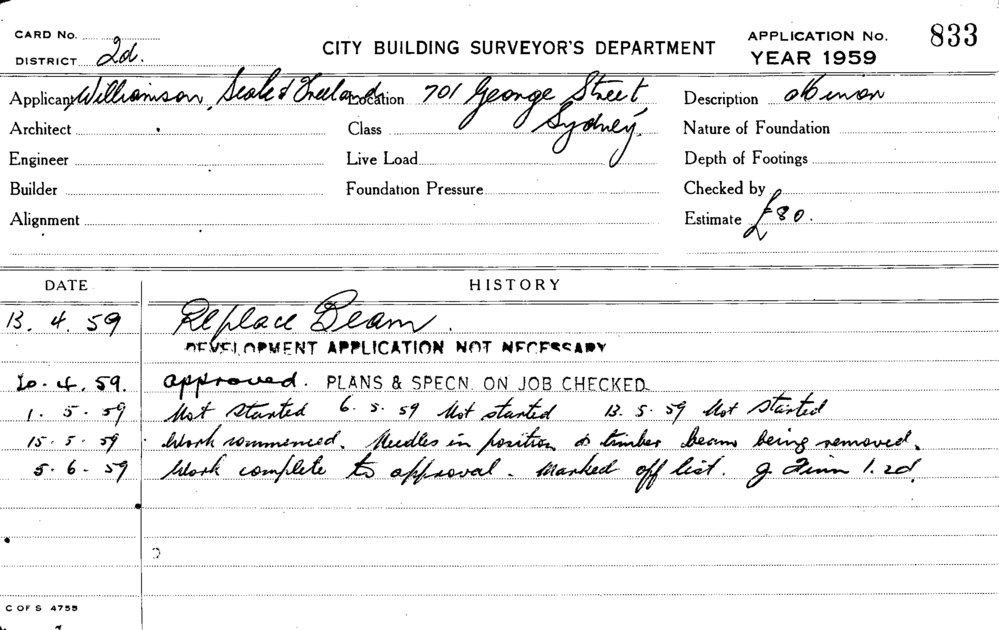 CARD No.
DISTRICT 2d.
CITY BUILDING SURVEYOR'S DEPARTMENT
APPLICATION No. 833
YEAR 1959
Applicant Williamson, Scale & Freeland Location 701 George Street Description
Architect Class Sydney Nature of Foundation
Engineer Live Load Depth of Footings
Builder Foundation Pressure Checked by
Alignment Estimate £80.
DATE HISTORY
13. 4. 59 Replace Beam.
DEVELOPMENT APPLICATION NOT NECESSARY
20. 4. 59. approved. PLANS & SPECN. ON JOB CHECKED.
1. 5. 59 Not started 6. 5. 59 Not started 13. 5. 59 Not started
15. 5. 59 Work commenced. Needles in position & timber beam being removed.
5. 6. 59 Work complete to approval. Marked off list. J. Finn 1. 2d
C OF S 4755